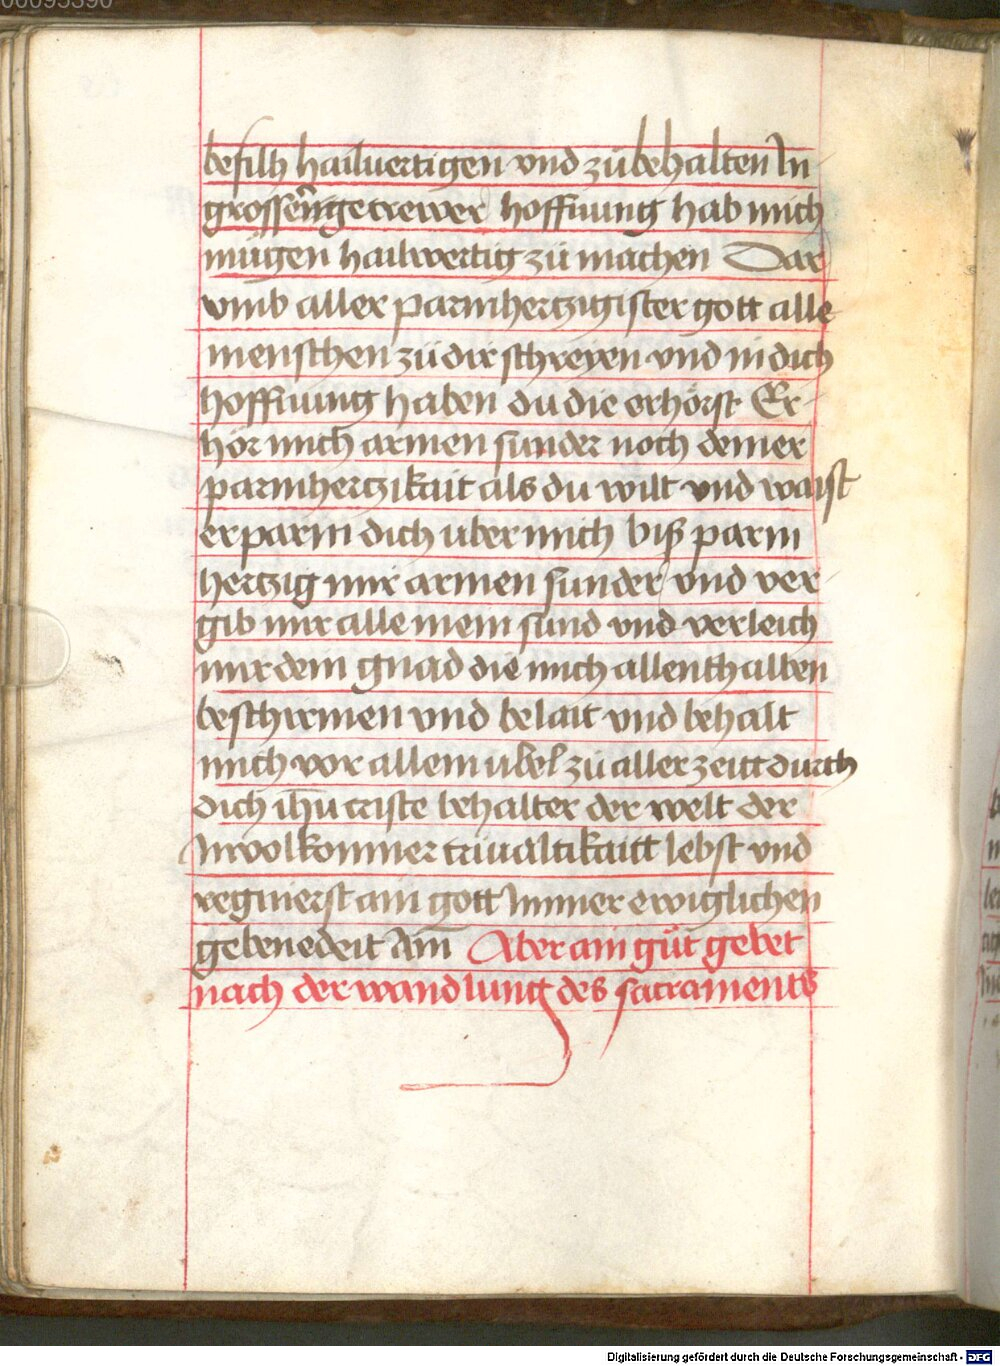 00095390
befilh hailwertigen vnd zů behalten In
grossen̄ getrewer hoffnung hab mich
mügen hailwertig zů machen Dar
vmb aller parmhertzigister gott alle
menschen zů dir schreyen vnd in dich
hoffnung haben du die erhörst Er-
hör mich armen sunder noch deiner
parmhertzikait als du wilt vnd waist
erparm dich uber mich biß parm
hertzig mir armen sunder vnd ver
gib mir alle mein sünd vnd verleich
mir dein gnad die mich allenthalben
beschirmen vnd belait vnd behalt
mich vor allem ubel zů aller zeitt durch
dich ih̄u criste behalter der welt der
In volkomner triualtikaitt lebst vnd
regnierst ain gott Immer ewiglichen
gebenedeit Am̄ Aber ain gůt gebet
nach der wandlung des sacraments
Digitalisierung gefördert durch die Deutsche Forschungsgemeinschaft - DFG